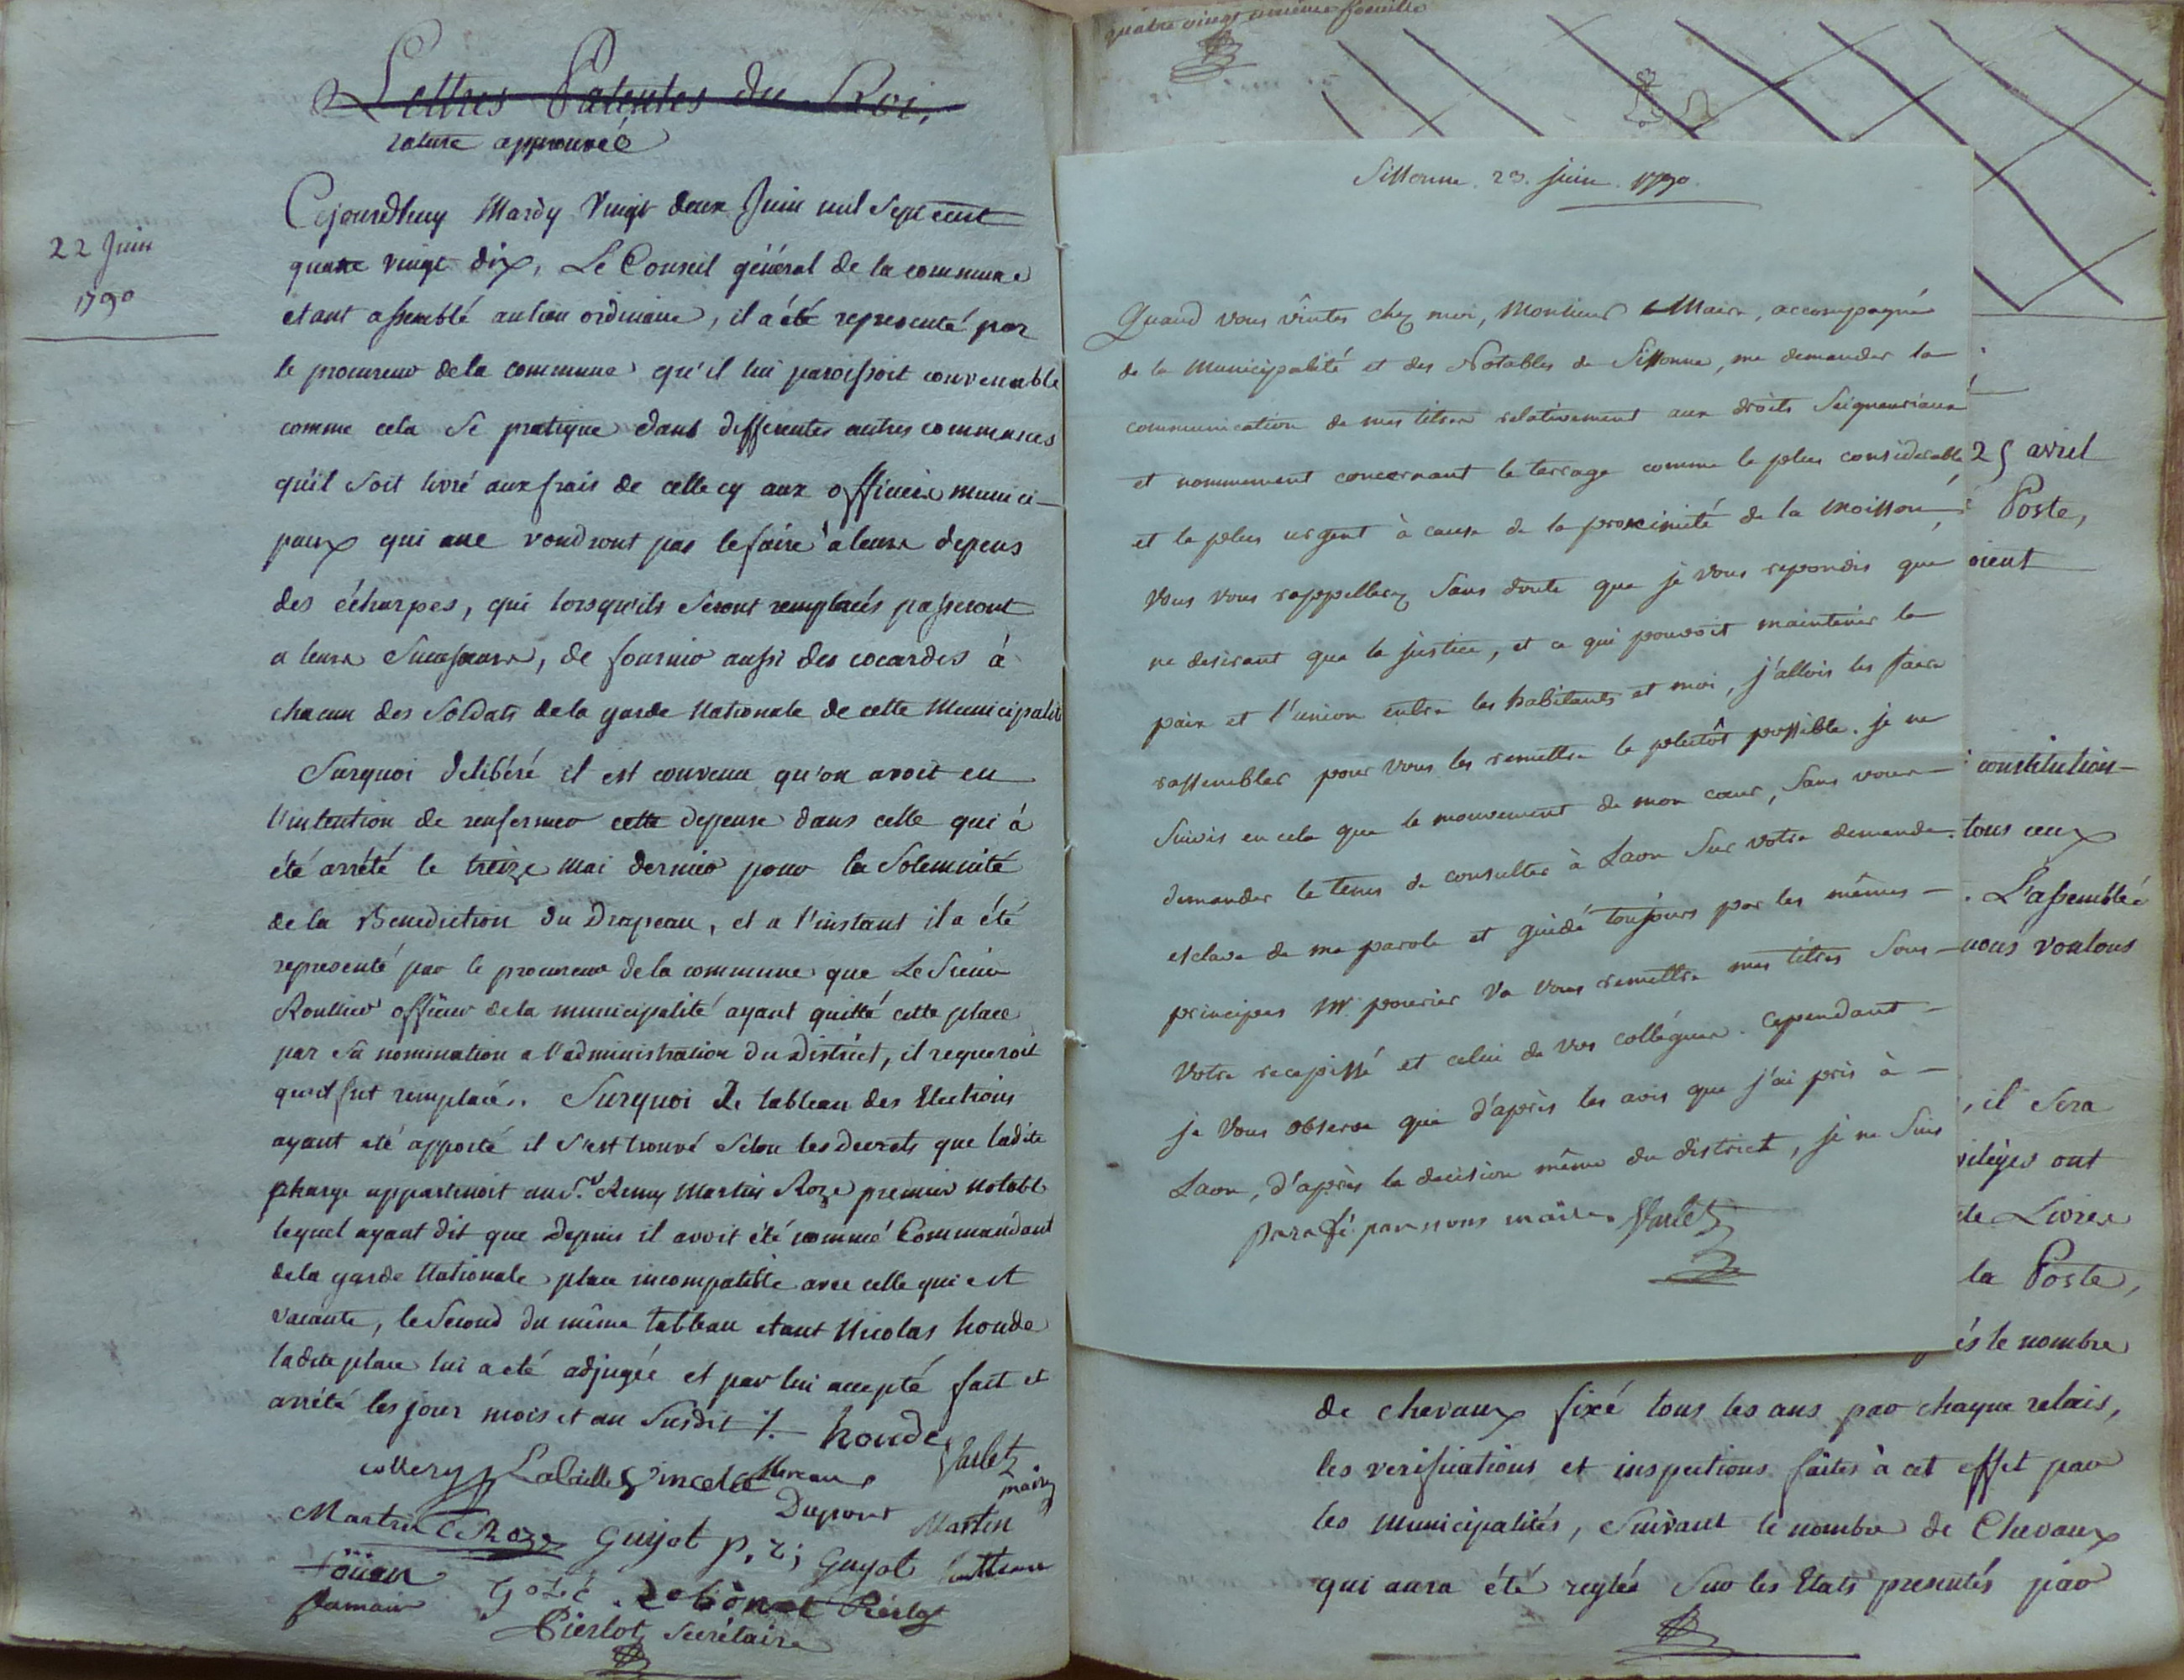 Lettres Patentes du Roi,
rature approuvée
22 Juin
1790
Cejourdhuy Mardy Vingt deux Juin mil Sept cent
quatre vingt dix, Le Conseil général de la commune
etant assemblé au lieu ordinaire, il a été representé par
le procureur de la commune qu'il lui paroissoit convenable
comme cela Se pratique dans differentes autres communes
qu'il Soit livré aux frais de celle cy aux officiers munici-
paux qui ne voudront pas le faire à leurs depens
des écharpes, qui lorsqu'ils Seront remplacés passeront
a leurs Successeurs, de fournir aussi des cocardes à
chacun des Soldats de la garde Nationale de cette Municipalité
Surquoi delibéré il est convenu qu'on avoit eu
l'intention de renfermer cette depense dans celle qui à
été arrêté le treize Mai dernier pour la Solemnité
de la Benediction du Drapeau, et a l'instant il a été
representé par le procureur de la commune que Le Sieur
Roullier officier de la municipalité ayant quitté cette place
par Sa nomination a l'administration du District, il requeroit
qu'il fut remplacé. Surquoi Le tableau des Elections
ayant eté apporté il S'est trouvé Selon les Decrets que ladite
charge appartenoit au S.r Remy Martin Roze premier notable
lequel ayant dit que Depuis il avoit été nommé Commandant
de la garde Nationale place incompatible avec celle qui est
vacante, le Second du même tableau etant Nicolas houde
ladite place lui a eté adjugée et par lui accepté fait et
arrêté les jour mois et an Susdit ./. houde
collery Labaille Vincelet Moreau Varlet
maire
Dupont
Martin Roze Guyot p. r; Guyot Martin
Goté Lebonet Pierlot
Pierlot Secrétaire
quatre vingt onzieme feuille
Sissonne. 23. juin. 1790.
Quand vous vîntes chez moi, Monsieur le Maire, accompagné
de la Municipalité et des Notables de Sissonne, me demander la
communication de mes titres relativement aux droits Seigneuriaux
et nommement concernant le terrage comme le plus considerable
et le plus urgent à cause de la proximité de la moisson,
vous vous rappellerez Sans doute que je vous repondis que
ne desirant que la justice, et ce qui pouvoit maintenir la
paix et l'union entre les habitants et moi, j'allois les faire
rassembler pour vous les remettre le plutôt possible. je ne
Suivis en cela que le mouvement de mon cœur, Sans vous
demander le tems de consulter à Laon Sur votre demande.
esclave de ma parole et guidé toujours par les mêmes
principes Mr. pourier va vous remettre mes titres Sous
votre recepissé et celui de vos collégues. Cependant
je vous observe que d'après les avis que j'ai pris à
Laon, d'après la decision même du district, je ne Suis
parafé par nous maire Varlet
25 avril
Poste,
oient
constitution
tous ceux
. L'assemblée
nous voulons
, il Sera
vilèges ont
de Livres
la Poste,
és le nombre
de chevaux fixé tous les ans par chaque relais,
les verifications et inspections faites à cet effet par
les Municipalités, Suivant le nombre de Chevaux
qui aura été reglés Sur les Etats presentés par